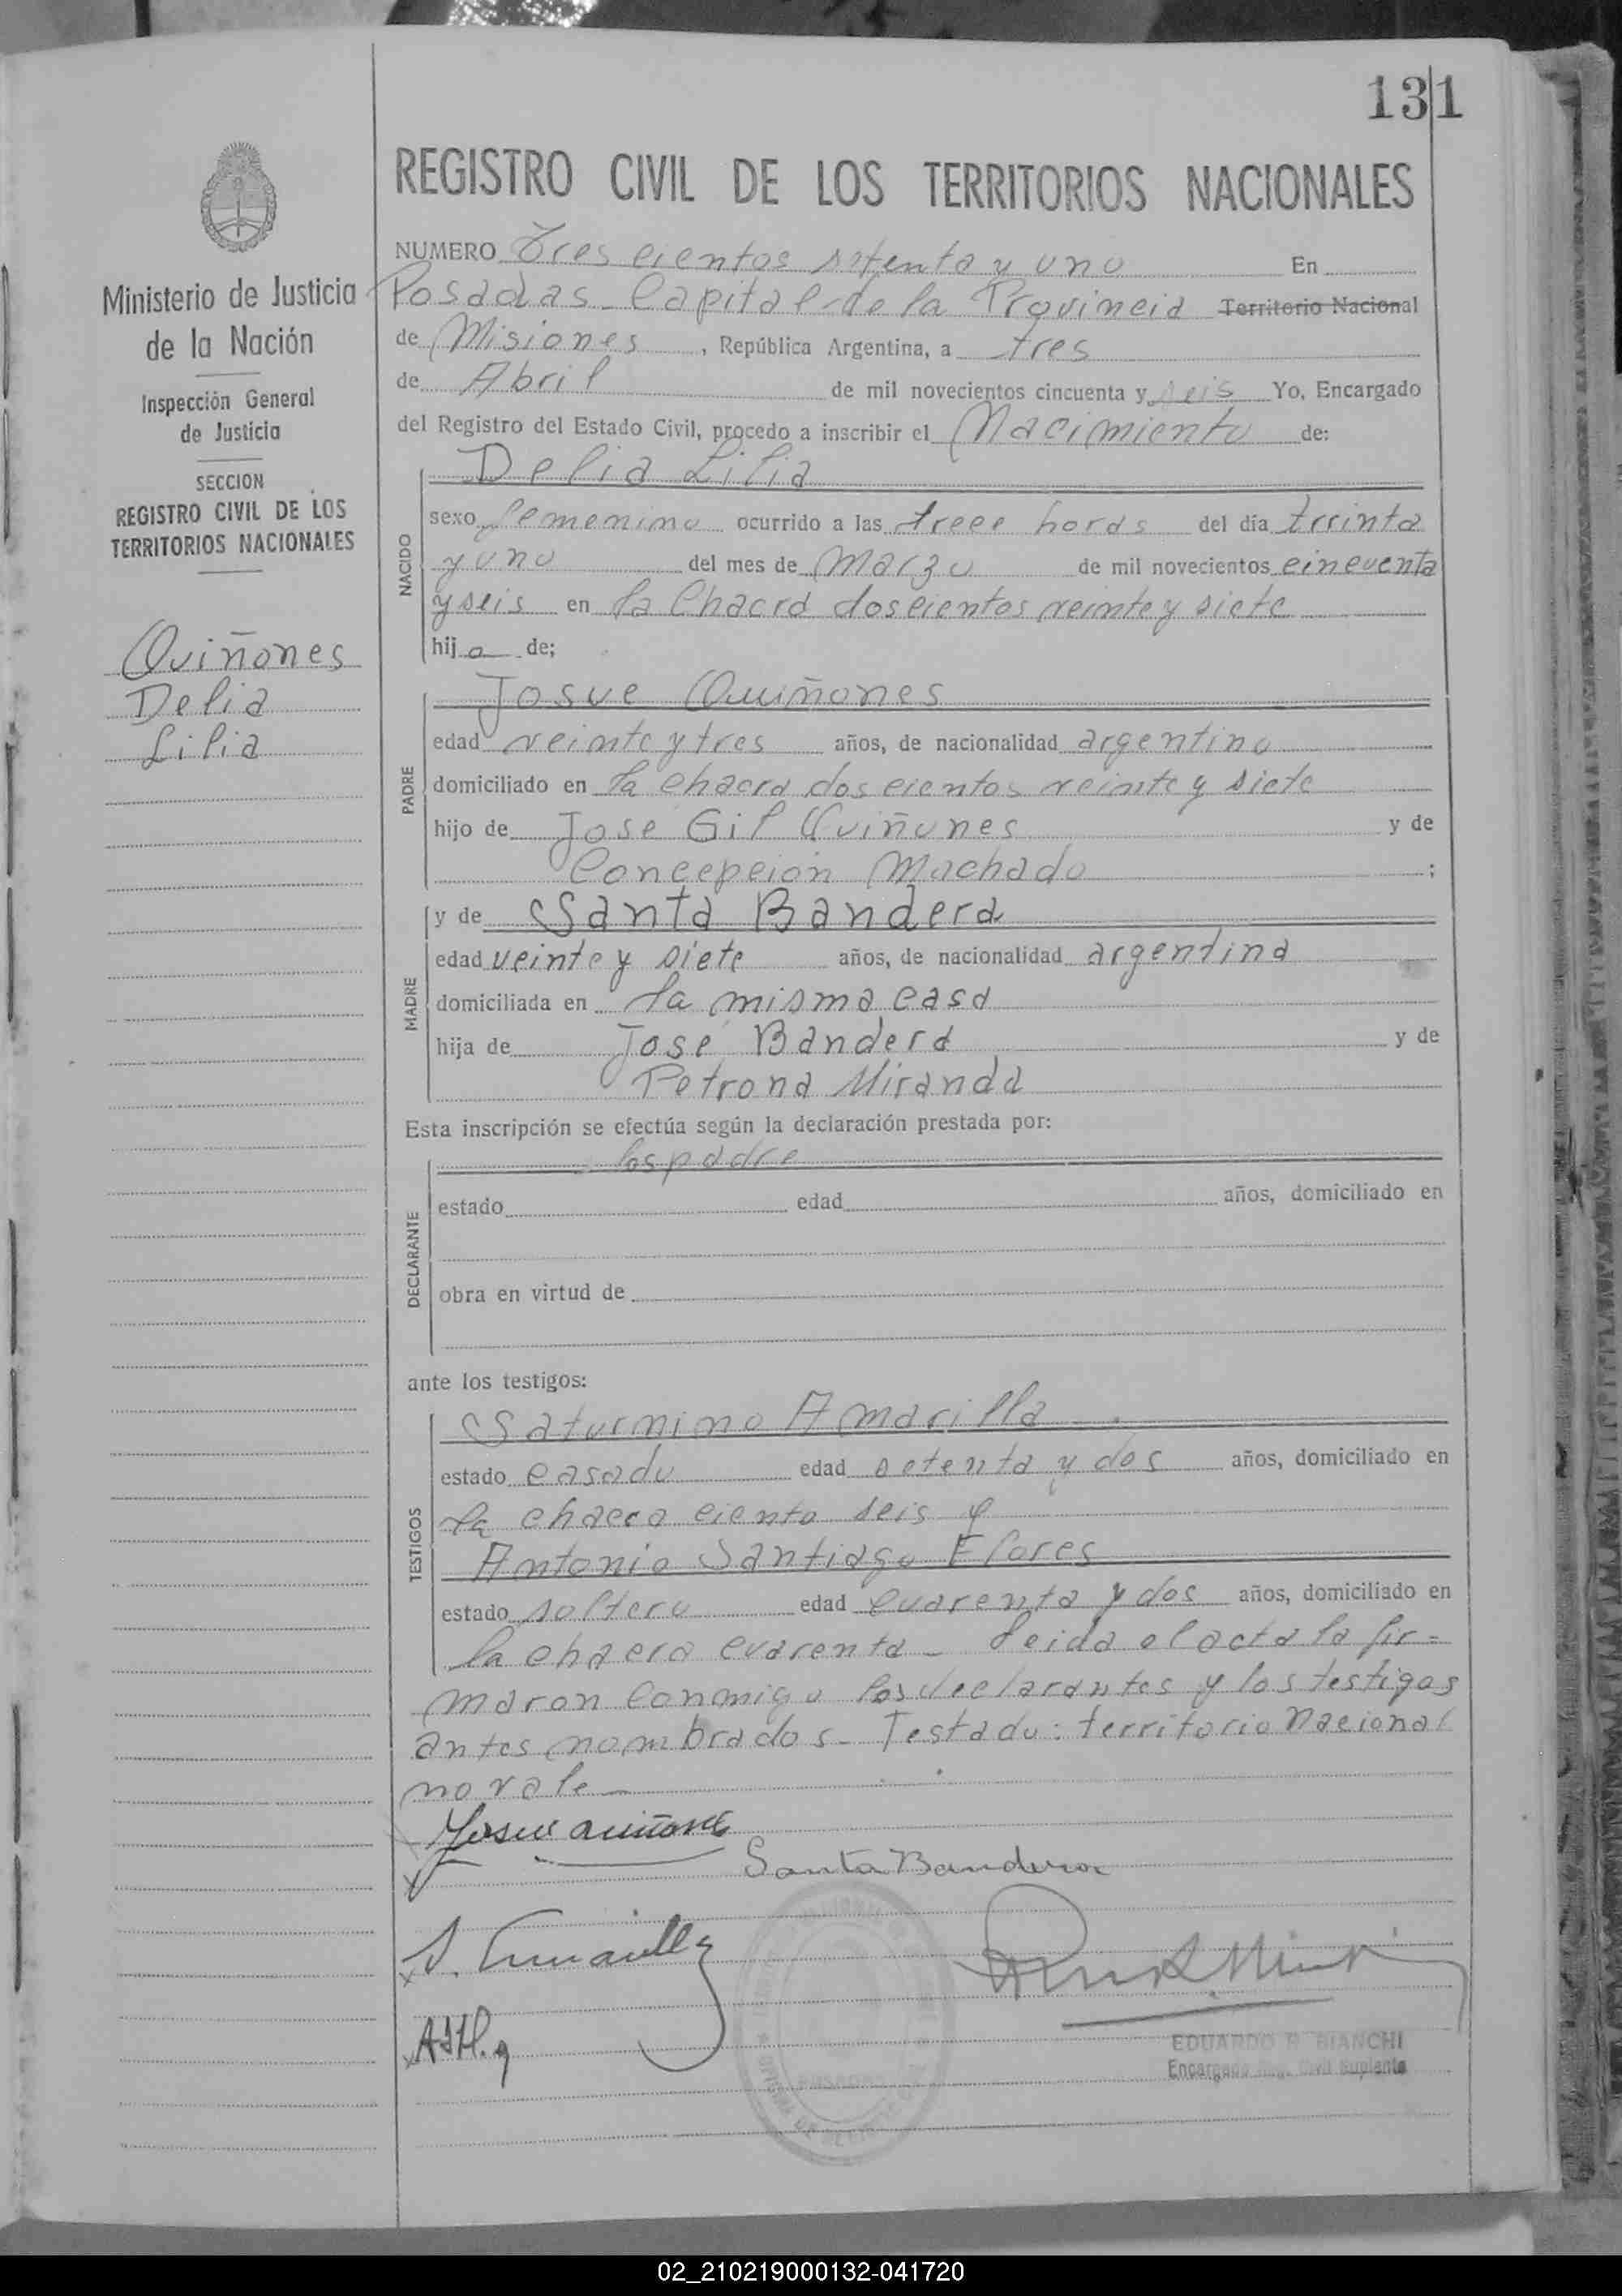 131
REGISTRO CIVIL DE LOS TERRITORIOS NACIONALES
Ministerio de Justicia
de la Nación
Inspección General
de Justicia
SECCION
REGISTRO CIVIL DE LOS
TERRITORIOS NACIONALES
Quiñones
Delia
Lilia
NUMERO Tres cientos setenta y uno En
Posadas - Capital de la Provincia Territorio Nacional
de Misiones , República Argentina, a tres
de Abril de mil novecientos cincuenta y seis Yo, Encargado
del Registro del Estado Civil, procedo a inscribir el Nacimiento de:
NACIDO
Delia Lilia
sexo femenino ocurrido a las trece horas del día treinta
y uno del mes de Marzo de mil novecientos cincuenta
y seis en la Chacra doscientos veinte y siete
hij a de;
PADRE
Josue Quiñones
edad veinte y tres años, de nacionalidad argentino
domiciliado en la chacra dos cientos veinte y siete
hijo de José Gil Quiñones y de
Concepción Machado ;
MADRE
y de Santa Bandera
edad veinte y siete años, de nacionalidad argentina
domiciliada en la misma casa
hija de José Bandera y de
Petrona Miranda
Esta inscripción se efectúa según la declaración prestada por:
DECLARANTE
los padre
estado edad años, domiciliado en
obra en virtud de
ante los testigos:
TESTIGOS
Saturnino Amarilla
estado casado edad setenta y dos años, domiciliado en
la chacra ciento seis y
Antonio Santiago Flores
estado soltero edad cuarenta y dos años, domiciliado en
la chacra cuarenta - Leida el acta la fir=
maron conmigo los declarantes y los testigos
antes nombrados - Testado: territorio Nacional
no vale
Josue Quiñones
Santa Bandera
S. Amarilla
EDUARDO R. BIANCHI
Encargado Reg. Civil Suplente
POSADAS
02_210219000132-041720